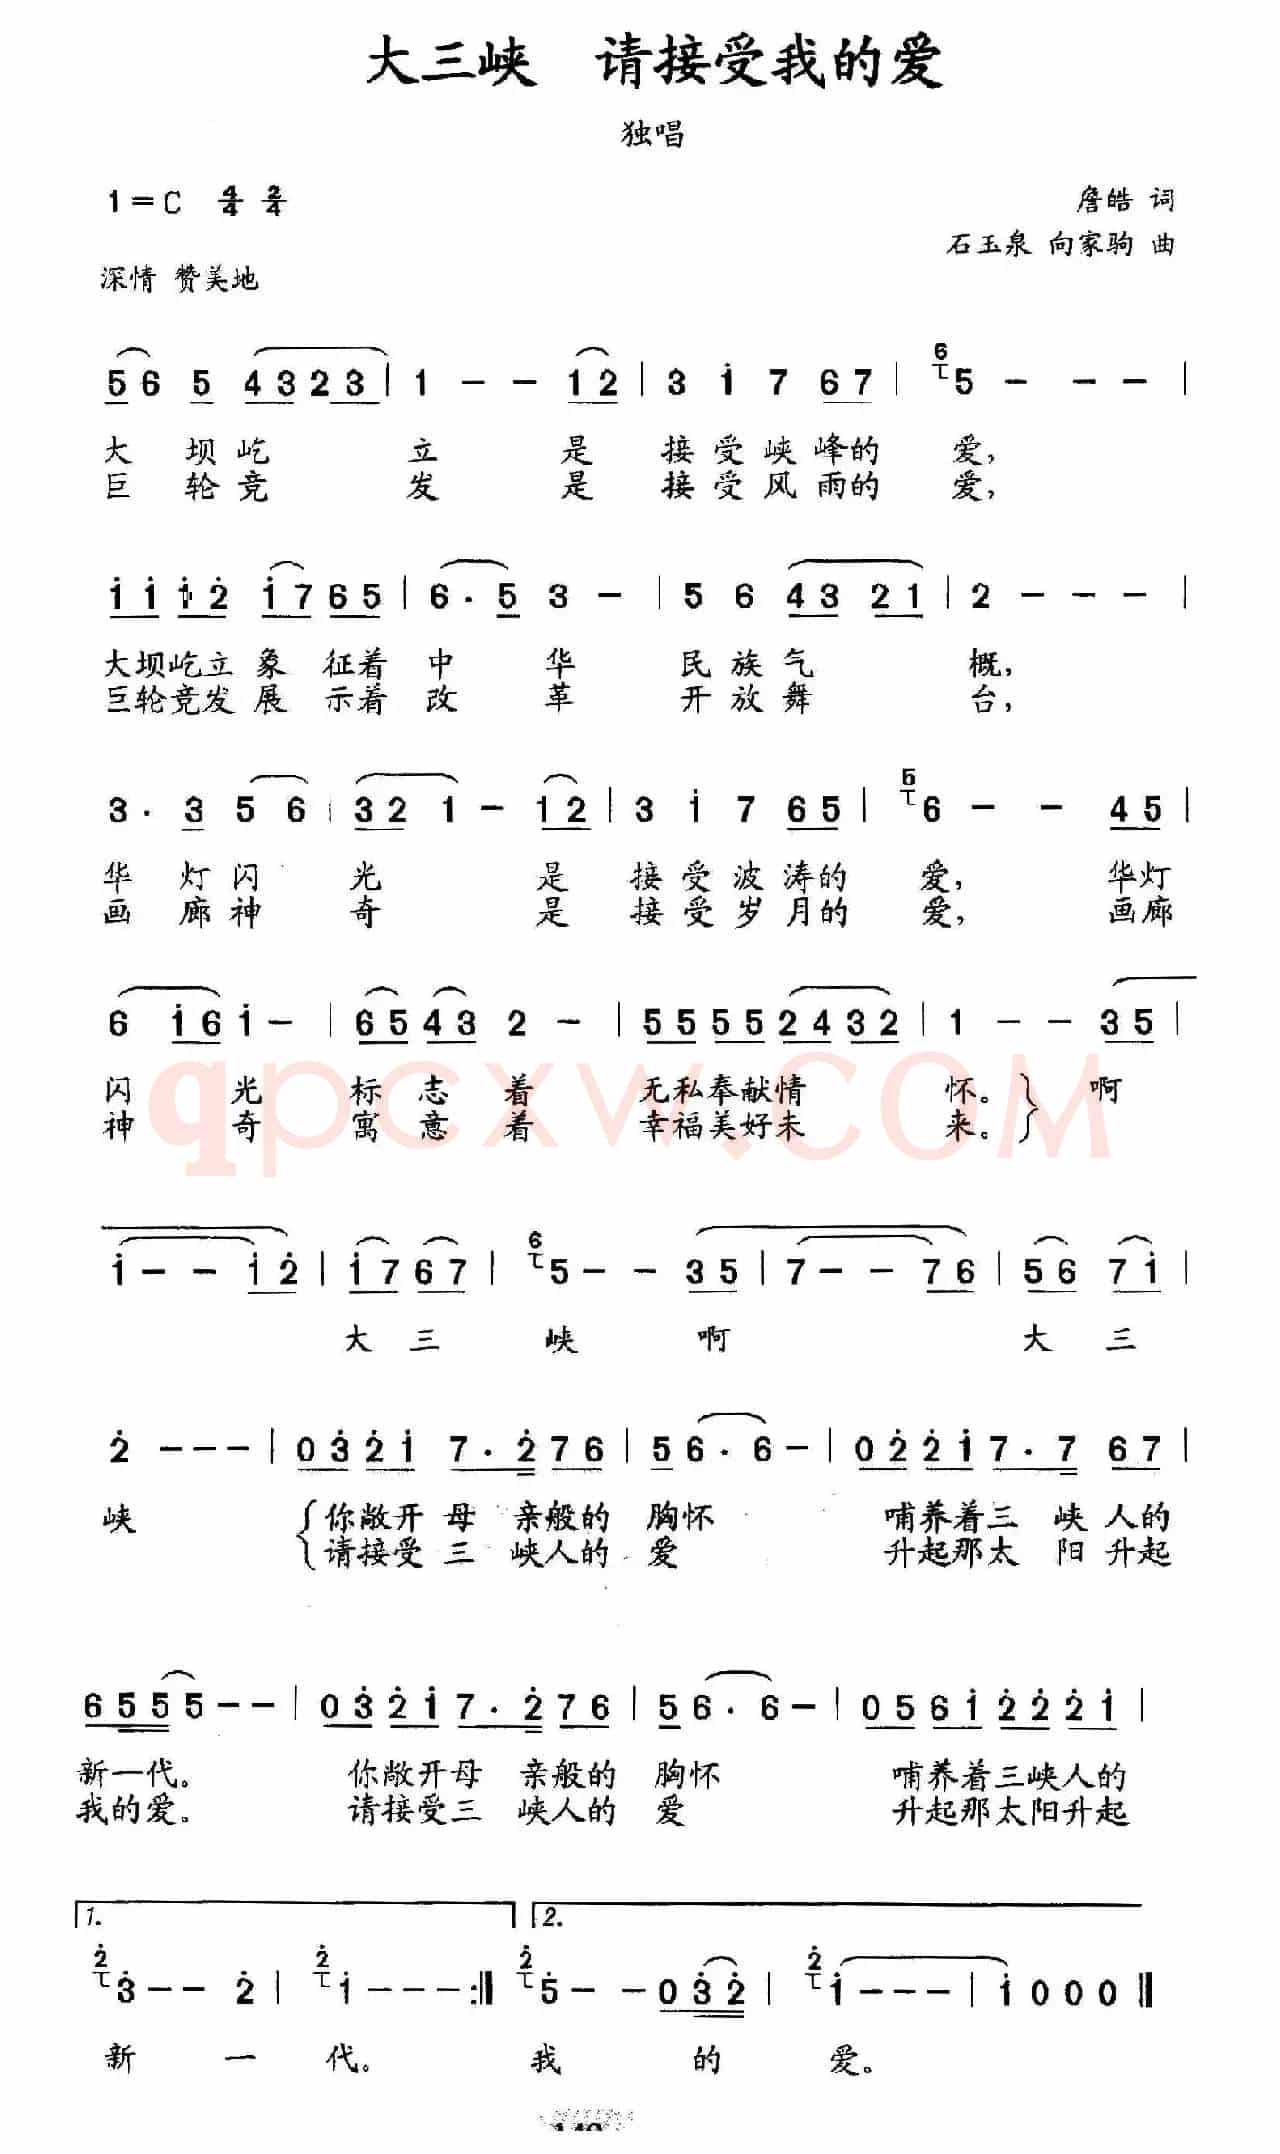 大三峡 请接受我的爱
独唱
1=C 4/4 2/4
詹皓 词
石玉泉 向家驹 曲
深情 赞美地
5 6 5 4 3 2 3 | 1 - - 1 2 | 3 i 7 6 7 | 6 5 - - - |
大 坝 屹 立 是 接 受 峡 峰 的 爱，
巨 轮 竞 发 是 接 受 风 雨 的 爱，
i i i 2 i 7 6 5 | 6 · 5 3 - | 5 6 4 3 2 1 | 2 - - - |
大坝屹立象 征着 中 华 民 族 气 概，
巨轮竞发展 示着 改 革 开 放 舞 台，
3 · 3 5 6 | 3 2 1 - 1 2 | 3 i 7 6 5 | 5 6 - - 4 5 |
华 灯 闪 光 是 接 受 波 涛 的 爱， 华灯
画 廊 神 奇 是 接 受 岁 月 的 爱， 画廊
6 i 6 i - | 6 5 4 3 2 - | 5 5 5 5 2 4 3 2 | 1 - - 3 5 |
闪 光 标 志 着 无私奉献情 怀。 } 啊
神 奇 寓 意 着 幸福美好未 来。 }
qpcxw.COM
i - - i 2 | i 7 6 7 | 6 5 - - 3 5 | 7 - - 7 6 | 5 6 7 i |
大 三 峡 啊 大 三
2 - - - | 0 3 2 i 7 · 2 7 6 | 5 6 · 6 - | 0 2 2 i 7 · 7 6 7 |
峡 { 你敞开母 亲般的 胸怀 哺养着三 峡 人的
{ 请接受三 峡人的 爱 升起那太 阳 升起
6 5 5 5 - - | 0 3 2 i 7 · 2 7 6 | 5 6 · 6 - | 0 5 6 i 2 2 2 i |
新一代。 你敞开母 亲般的 胸怀 哺养着三峡人的
我的爱。 请接受三 峡人的 爱 升起那太阳升起
1. 2.
2 3 - - 2 | 2 i - - - :‖ 2 5 - - 0 3 2 | 2 i - - - | i 0 0 0 ‖
新 一 代。 我 的 爱。